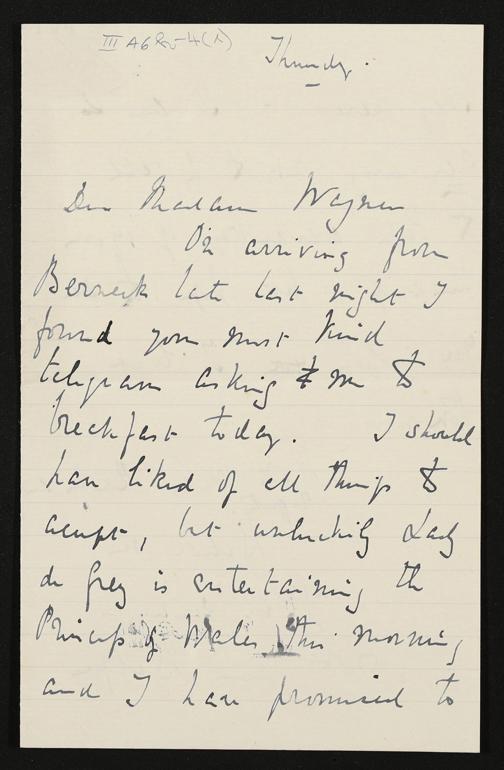 III A6
Thursday.
Dear Madam Wagner
On arriving from
Berneck late last night I
found your most kind
telegram asking me to
breakfast today. I should
have liked of all things to
accept, but unluckily Lady
de Grey is entertaining the
Princess of Wales this morning
and I have promised to